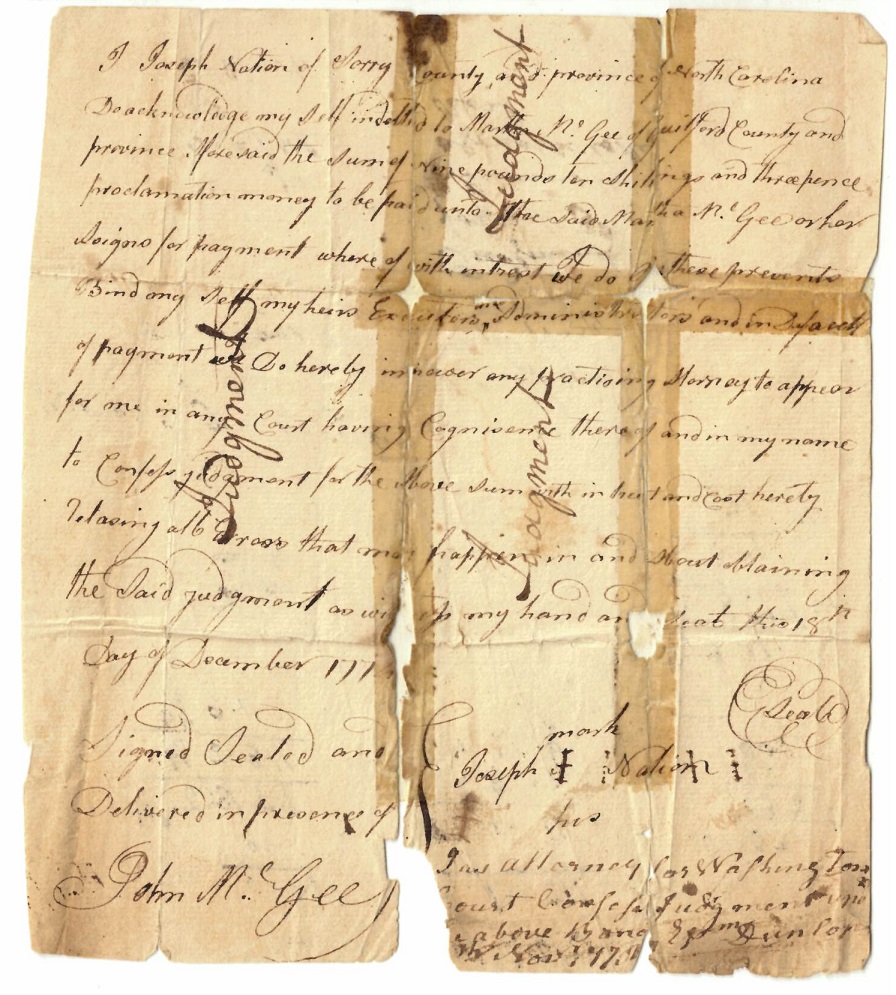 I Joseph Nation of Sorry County and province of North Carolina
Do acknowledge my Self indebted to Martha Mc Gee of Guilford County and
province Aforesaid the Sum of Nine pounds ten Shillings and threepence
proclamation money to be paid unto the Said Martha Mc Gee or her
Asigns for payment where of with intrest we do by these presents
Bind my Self my heirs Executors and Administrators and in Default
of payment Do hereby impower any practising Atorney to appear
for me in any Court having Cognisence thereof and in my name
to Confess judgment for the Above Sum with intrest and Cost hereby
Relasing all Errors that may happen in and About obtaining
the Said judgment as witness my hand and Seal this 18th
Day of December 177
Seal
Signed Sealed and
Delivered in presence of
John Mc Gee
mark
Joseph Nation
his
I as attorney for Washington
Court Confess Judgment
above Ephm Dunlop
Nov
Judgment
Judgment
Judgment